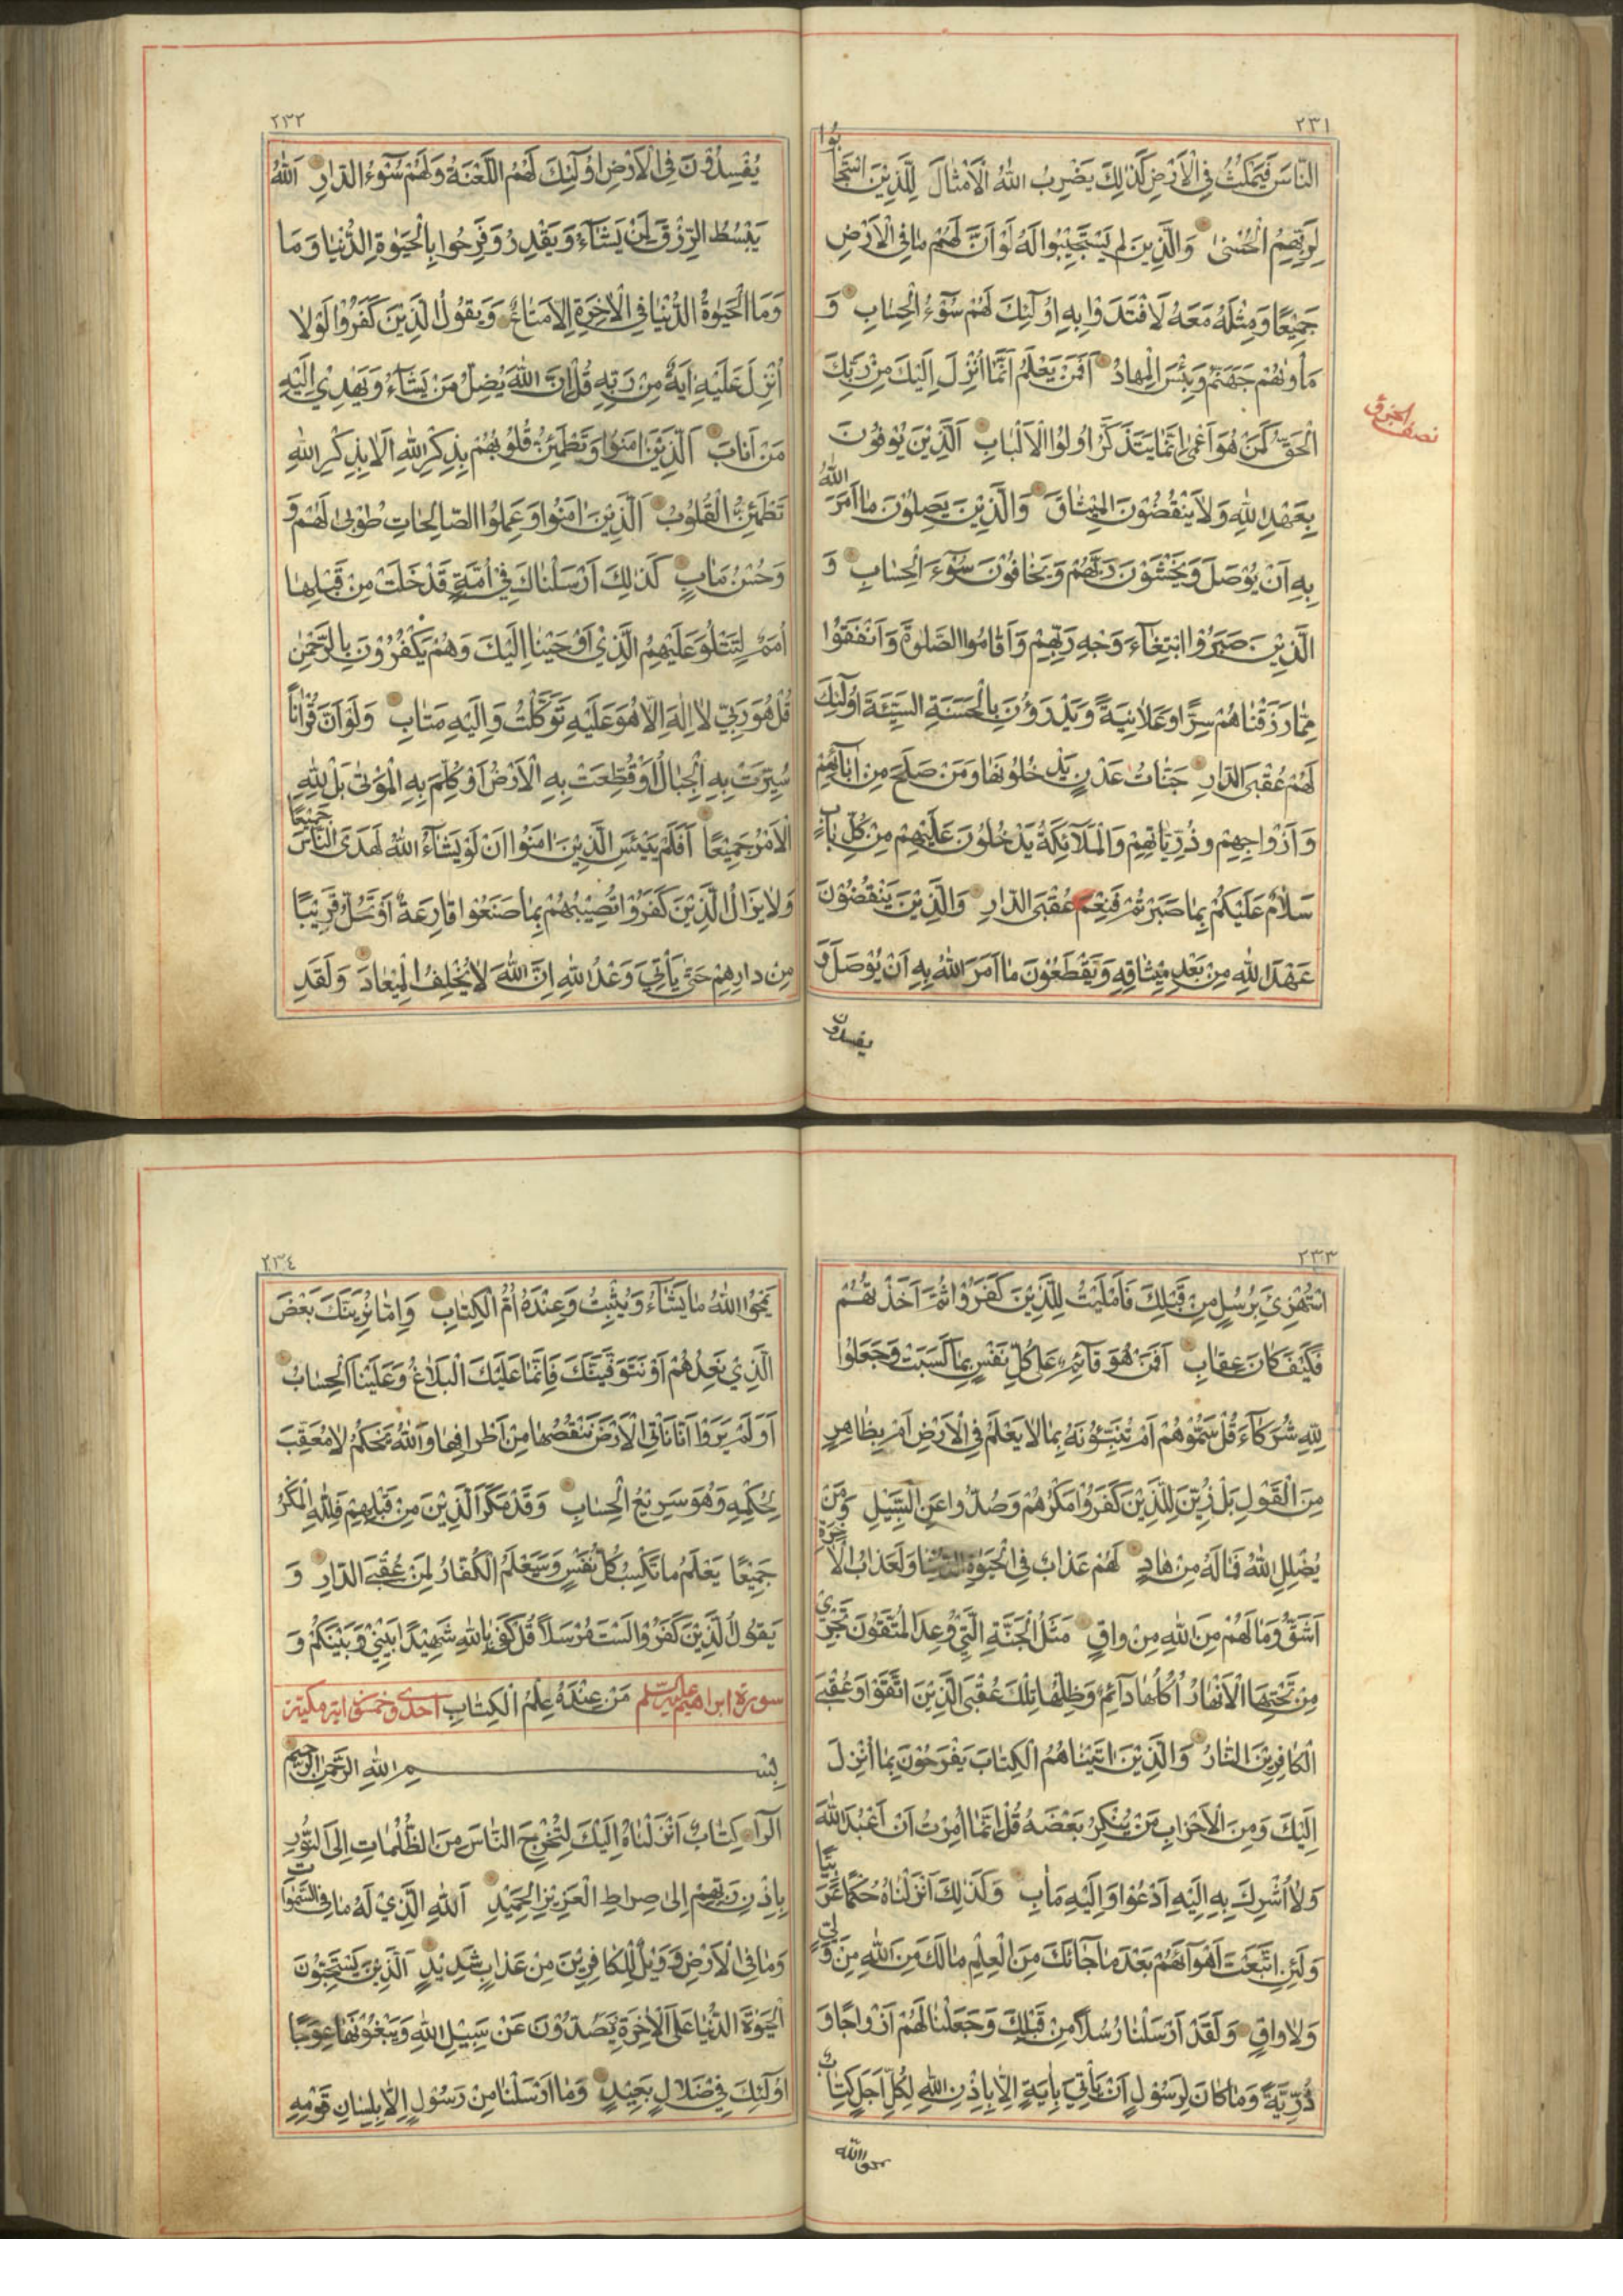 ٢٣١
النَّاسَ فَيَمْكُثُ فِي الْاَرْضِ كَذٰلِكَ يَضْرِبُ اللّٰهُ الْاَمْثَالَ لِلَّذِينَ اسْتَجَابُوا
لِرَبِّهِمُ الْحُسْنٰى وَالَّذِينَ لَمْ يَسْتَجِيْبُوا لَهُ لَوْ اَنَّ لَهُمْ مَا فِي الْاَرْضِ
جَمِيْعًا وَمِثْلَهُ مَعَهُ لَافْتَدَوْا بِهِ اُولٰٓئِكَ لَهُمْ سُوْٓءُ الْحِسَابِ وَ
مَاْوٰيهُمْ جَهَنَّمُ وَبِئْسَ الْمِهَادُ اَفَمَنْ يَعْلَمُ اَنَّمَا اُنْزِلَ اِلَيْكَ مِنْ رَبِّكَ
الْحَقُّ كَمَنْ هُوَ اَعْمٰى اِنَّمَا يَتَذَكَّرُ اُولُوا الْاَلْبَابِ اَلَّذِيْنَ يُوْفُونَ
بِعَهْدِ اللّٰهِ وَلَا يَنْقُضُوْنَ الْمِيْثَاقَ وَالَّذِيْنَ يَصِلُوْنَ مَا اَمَرَ اللّٰهُ
بِهِ اَنْ يُوْصَلَ وَيَخْشَوْنَ رَبَّهُمْ وَيَخَافُوْنَ سُوْٓءَ الْحِسَابِ وَ
الَّذِيْنَ صَبَرُوْا ابْتِغَآءَ وَجْهِ رَبِّهِمْ وَاَقَامُوا الصَّلٰوةَ وَاَنْفَقُوْا
مِمَّا رَزَقْنَاهُمْ سِرًّا وَعَلَانِيَةً وَيَدْرَؤُنَ بِالْحَسَنَةِ السَّيِّئَةَ اُولٰٓئِكَ
لَهُمْ عُقْبَى الدَّارِ جَنَّاتُ عَدْنٍ يَدْخُلُوْنَهَا وَمَنْ صَلَحَ مِنْ اٰبَآئِهِمْ
وَاَزْوَاجِهِمْ وَذُرِّيَّاتِهِمْ وَالْمَلٰٓئِكَةُ يَدْخُلُوْنَ عَلَيْهِمْ مِنْ كُلِّ بَابٍ
سَلَامٌ عَلَيْكُمْ بِمَا صَبَرْتُمْ فَنِعْمَ عُقْبَى الدَّارِ وَالَّذِيْنَ يَنْقُضُوْنَ
عَهْدَ اللّٰهِ مِنْ بَعْدِ مِيْثَاقِهِ وَيَقْطَعُوْنَ مَا اَمَرَ اللّٰهُ بِهِ اَنْ يُوْصَلَ وَ
يفسدون
نصف الجزؤ
٢٣٢
يُفْسِدُوْنَ فِي الْاَرْضِ اُولٰٓئِكَ لَهُمُ اللَّعْنَةُ وَلَهُمْ سُوْٓءُ الدَّارِ اَللّٰهُ
يَبْسُطُ الرِّزْقَ لِمَنْ يَشَآءُ وَيَقْدِرُ وَفَرِحُوا بِالْحَيٰوةِ الدُّنْيَا وَمَا
وَمَا الْحَيٰوةُ الدُّنْيَا فِي الْاٰخِرَةِ اِلَّا مَتَاعٌ وَيَقُوْلُ الَّذِيْنَ كَفَرُوْا لَوْلَا
اُنْزِلَ عَلَيْهِ اٰيَةٌ مِنْ رَبِّهِ قُلْ اِنَّ اللّٰهَ يُضِلُّ مَنْ يَشَآءُ وَيَهْدِيْ اِلَيْهِ
مَنْ اَنَابَ اَلَّذِيْنَ اٰمَنُوا وَتَطْمَئِنُّ قُلُوْبُهُمْ بِذِكْرِ اللّٰهِ اَلَا بِذِكْرِ اللّٰهِ
تَطْمَئِنُّ الْقُلُوْبُ اَلَّذِيْنَ اٰمَنُوْا وَعَمِلُوا الصَّالِحَاتِ طُوْبٰى لَهُمْ وَ
وَحُسْنُ مَاٰبٍ كَذٰلِكَ اَرْسَلْنَاكَ فِيْ اُمَّةٍ قَدْ خَلَتْ مِنْ قَبْلِهَا
اُمَمٌ لِتَتْلُوَ عَلَيْهِمُ الَّذِيْ اَوْحَيْنَا اِلَيْكَ وَهُمْ يَكْفُرُوْنَ بِالرَّحْمٰنِ
قُلْ هُوَ رَبِّيْ لَا اِلٰهَ اِلَّا هُوَ عَلَيْهِ تَوَكَّلْتُ وَاِلَيْهِ مَتَابِ وَلَوْ اَنَّ قُرْاٰنًا
سُيِّرَتْ بِهِ الْجِبَالُ اَوْ قُطِّعَتْ بِهِ الْاَرْضُ اَوْ كُلِّمَ بِهِ الْمَوْتٰى بَلْ لِلّٰهِ
الْاَمْرُ جَمِيْعًا اَفَلَمْ يَيْئَسِ الَّذِيْنَ اٰمَنُوْا اَنْ لَوْ يَشَآءُ اللّٰهُ لَهَدَى النَّاسَ جَمِيْعًا
وَلَا يَزَالُ الَّذِيْنَ كَفَرُوْا تُصِيْبُهُمْ بِمَا صَنَعُوْا قَارِعَةٌ اَوْ تَحُلُّ قَرِيْبًا
مِنْ دَارِهِمْ حَتّٰى يَاْتِيَ وَعْدُ اللّٰهِ اِنَّ اللّٰهَ لَا يُخْلِفُ الْمِيْعَادَ وَلَقَدِ
٢٣٣
اسْتُهْزِئَ بِرُسُلٍ مِنْ قَبْلِكَ فَاَمْلَيْتُ لِلَّذِيْنَ كَفَرُوْا ثُمَّ اَخَذْتُهُمْ
فَكَيْفَ كَانَ عِقَابِ اَفَمَنْ هُوَ قَآئِمٌ عَلٰى كُلِّ نَفْسٍ بِمَا كَسَبَتْ وَجَعَلُوا
لِلّٰهِ شُرَكَآءَ قُلْ سَمُّوْهُمْ اَمْ تُنَبِّئُوْنَهُ بِمَا لَا يَعْلَمُ فِي الْاَرْضِ اَمْ بِظَاهِرٍ
مِنَ الْقَوْلِ بَلْ زُيِّنَ لِلَّذِيْنَ كَفَرُوْا مَكْرُهُمْ وَصُدُّوا عَنِ السَّبِيْلِ وَمَنْ
يُضْلِلِ اللّٰهُ فَمَا لَهُ مِنْ هَادٍ لَهُمْ عَذَابٌ فِي الْحَيٰوةِ الدُّنْيَا وَلَعَذَابُ الْاٰخِرَةِ
اَشَقُّ وَمَا لَهُمْ مِنَ اللّٰهِ مِنْ وَاقٍ مَثَلُ الْجَنَّةِ الَّتِيْ وُعِدَ الْمُتَّقُوْنَ تَجْرِيْ
مِنْ تَحْتِهَا الْاَنْهَارُ اُكُلُهَا دَآئِمٌ وَظِلُّهَا تِلْكَ عُقْبَى الَّذِيْنَ اتَّقَوْا وَعُقْبَى
الْكَافِرِيْنَ النَّارُ وَالَّذِيْنَ اٰتَيْنَاهُمُ الْكِتَابَ يَفْرَحُوْنَ بِمَا اُنْزِلَ
اِلَيْكَ وَمِنَ الْاَحْزَابِ مَنْ يُنْكِرُ بَعْضَهُ قُلْ اِنَّمَا اُمِرْتُ اَنْ اَعْبُدَ اللّٰهَ
وَلَا اُشْرِكَ بِهِ اِلَيْهِ اَدْعُوْا وَاِلَيْهِ مَاٰبِ وَكَذٰلِكَ اَنْزَلْنَاهُ حُكْمًا عَرَبِيًّا
وَلَئِنِ اتَّبَعْتَ اَهْوَآءَهُمْ بَعْدَ مَا جَآئَكَ مِنَ الْعِلْمِ مَا لَكَ مِنَ اللّٰهِ مِنْ وَلِيٍّ
وَلَا وَاقٍ وَلَقَدْ اَرْسَلْنَا رُسُلًا مِنْ قَبْلِكَ وَجَعَلْنَا لَهُمْ اَزْوَاجًا وَ
ذُرِّيَّةً وَمَا كَانَ لِرَسُوْلٍ اَنْ يَاْتِيَ بِاٰيَةٍ اِلَّا بِاِذْنِ اللّٰهِ لِكُلِّ اَجَلٍ كِتَابٌ
يمحوا الله
٢٣٤
يَمْحُوا اللّٰهُ مَا يَشَآءُ وَيُثْبِتُ وَعِنْدَهُ اُمُّ الْكِتَابِ وَاِمَّا نُرِيَنَّكَ بَعْضَ
الَّذِيْ نَعِدُهُمْ اَوْ نَتَوَفَّيَنَّكَ فَاِنَّمَا عَلَيْكَ الْبَلَاغُ وَعَلَيْنَا الْحِسَابُ
اَوَلَمْ يَرَوْا اَنَّا نَاْتِي الْاَرْضَ نَنْقُصُهَا مِنْ اَطْرَافِهَا وَاللّٰهُ يَحْكُمُ لَا مُعَقِّبَ
لِحُكْمِهِ وَهُوَ سَرِيْعُ الْحِسَابِ وَقَدْ مَكَرَ الَّذِيْنَ مِنْ قَبْلِهِمْ فَلِلّٰهِ الْمَكْرُ
جَمِيْعًا يَعْلَمُ مَا تَكْسِبُ كُلُّ نَفْسٍ وَسَيَعْلَمُ الْكُفَّارُ لِمَنْ عُقْبَى الدَّارِ وَ
يَقُوْلُ الَّذِيْنَ كَفَرُوْا لَسْتَ مُرْسَلًا قُلْ كَفٰى بِاللّٰهِ شَهِيْدًا بَيْنِيْ وَبَيْنَكُمْ وَ
سورة ابراهيم عليه السلم مَنْ عِنْدَهُ عِلْمُ الْكِتَابِ احدى وخمسون اية مكية
بِسْمِ اللّٰهِ الرَّحْمٰنِ الرَّحِيْمِ
الٓرٰ كِتَابٌ اَنْزَلْنَاهُ اِلَيْكَ لِتُخْرِجَ النَّاسَ مِنَ الظُّلُمَاتِ اِلَى النُّوْرِ
بِاِذْنِ رَبِّهِمْ اِلٰى صِرَاطِ الْعَزِيْزِ الْحَمِيْدِ اَللّٰهِ الَّذِيْ لَهُ مَا فِي السَّمٰوَاتِ
وَمَا فِي الْاَرْضِ وَوَيْلٌ لِلْكَافِرِيْنَ مِنْ عَذَابٍ شَدِيْدٍ اَلَّذِيْنَ يَسْتَحِبُّوْنَ
الْحَيٰوةَ الدُّنْيَا عَلَى الْاٰخِرَةِ يَصُدُّوْنَ عَنْ سَبِيْلِ اللّٰهِ وَيَبْغُوْنَهَا عِوَجًا
اُولٰٓئِكَ فِيْ ضَلَالٍ بَعِيْدٍ وَمَا اَرْسَلْنَا مِنْ رَسُوْلٍ اِلَّا بِلِسَانِ قَوْمِهِ